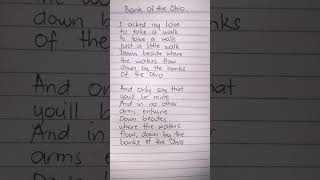 Bank Of the Ohio
I asked my love
to take a walk
to take a walk
Just a little walk
Down beside where
the waters flow
down by the banks
Of the Ohio
And only say that
you'll be mine
And in no other
arms entwine
Down besides
where the waters
flow, down by the
banks of the Ohio
And on
you'll b
And in
arms e
n other
ntwine